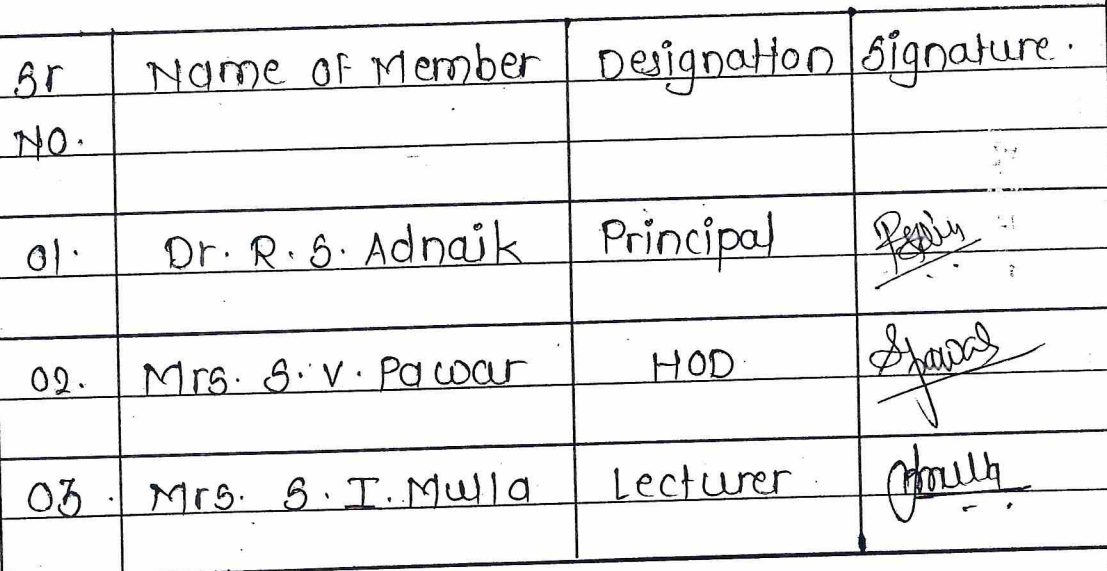 Sr Name of Member Designation Signature.
No.
01. Dr. R. S. Adnaik Principal
02. Mrs. S. V. Pawar HOD. Spawar
03. Mrs. S. I. Mulla Lecturer